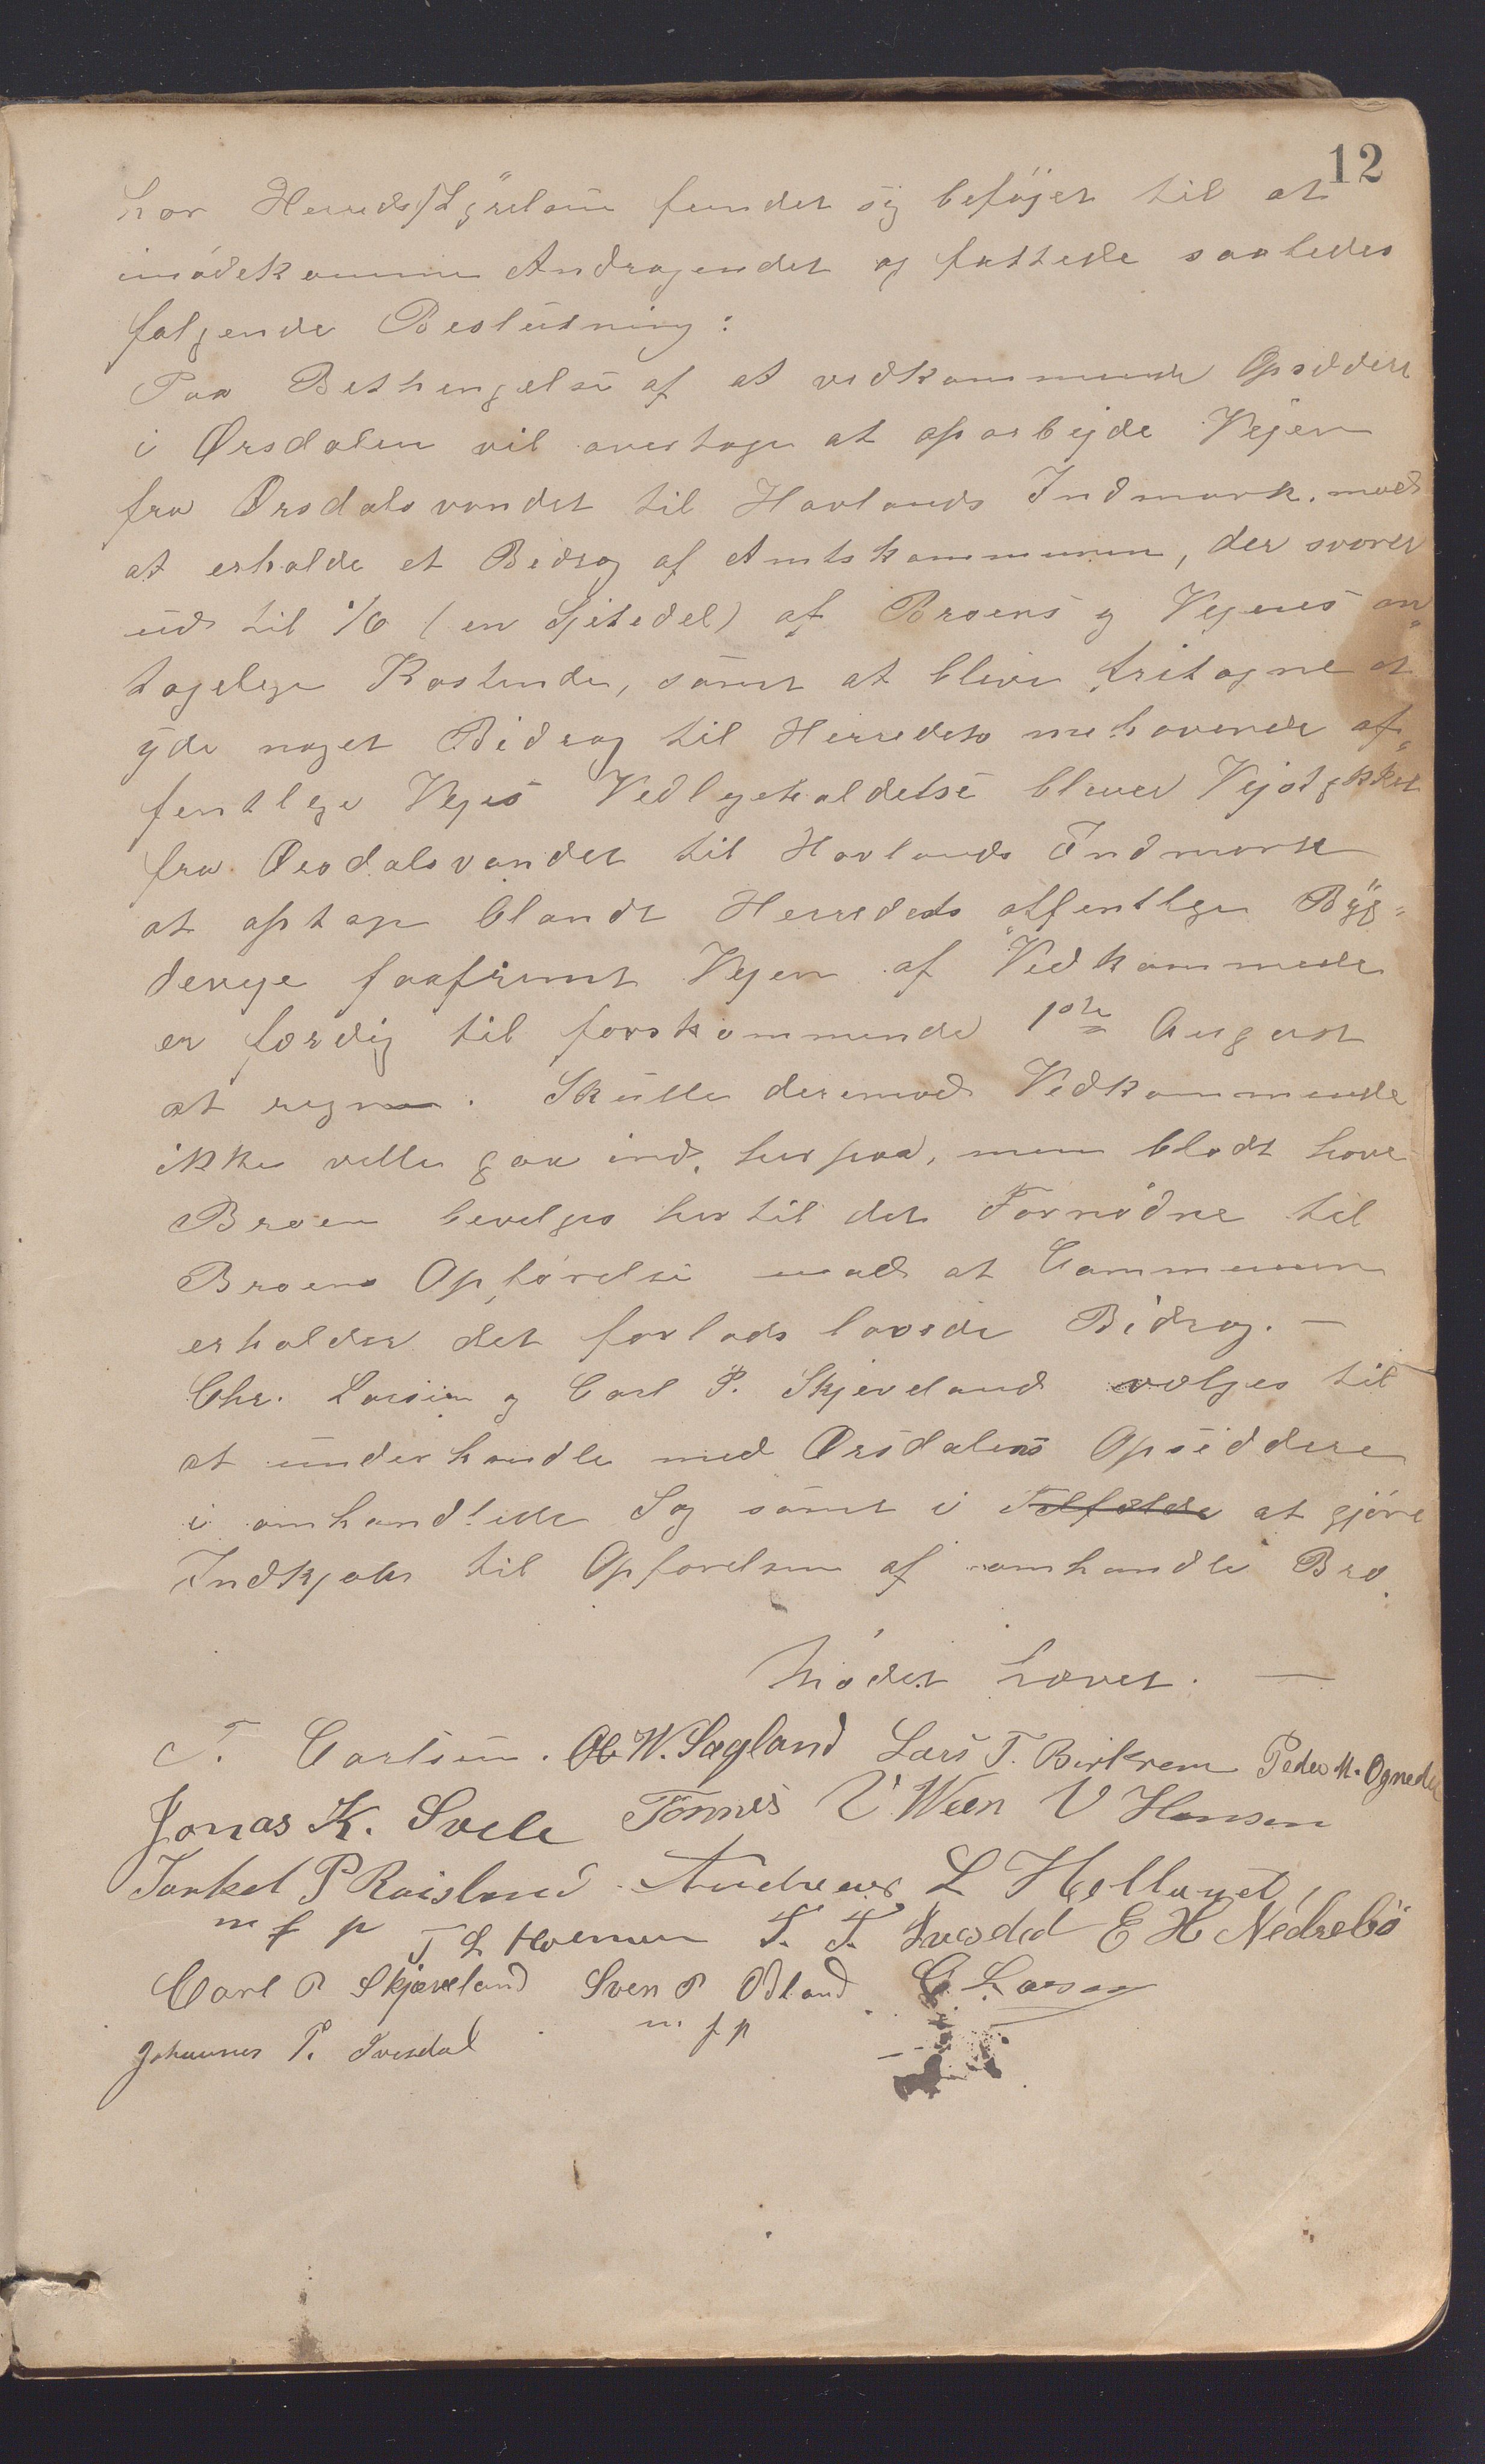 12
har Herredsstyrelsen fundet sig beføjet til at
imødekomme Andragendet og fattede saaledes
følgende Beslutning:
Paa Bethingelse af at vedkommende Opsiddere
i Ørsdalen vil overtage at oparbejde Vejen
fra Ørsdalsvandet til Hovlands Indmark, mod
at erholde et Bidrag af Amtskommunen, der svarer
ud til 1/6 (en Sjetedel) af Broens og Vejens an„
tagelige Kostende, samt at blive fritagne at
yde noget Bidrag til Herredets nuhavende of„
fentlige Vejes Vedligeholdelse bliver Vejstykket
fra Ørsdalsvandet til Hovlands Indmark
at optage blandt Herredets offentlige Byg=
deveje saafremt Vejen af Vedkommende
er færdig til førstkommende 1ste August
at regne. Skulle derimod Vedkommende
ikke ville gaa ind herpaa, men blodt have
Broen bevilges hertil det Fornødne til
Broens Opførelse mod at Communen
erholder det forlods lovede Bidrag. —
Chr. Larsen og Carl P. Skjeveland vælges til
at underhandle med Ørsdalens Opsiddere
i omhandlede Sag samt i Tilfælde at gjøre
Indkjøb til Opførelsen af omhandle Bro.
Mødet hævet. —
T. Carlsen. Ole W. Sægland Lars T. Birkrem Peder M. Ognedal
Jonas K. Svele Tønnes V Ween V Hansen
Torkel P Røisland Andreas L Hetland
m f p T L Holmen T. T. Ivesdal E H Nedrebö
Carl P Skjæveland Sven P Ødland C. Larsen
Johannes P. Ivesdal m f p